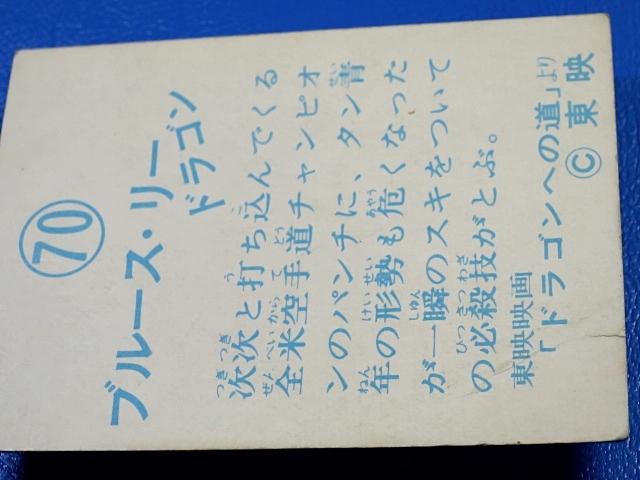 70
ブルース・リー
ドラゴン
次次と打ち込んでくる
全米空手道チャンピオ
ンのパンチに、タン青
年の形勢も危くなった
が一瞬のスキをついて
の必殺技がとぶ。
東映映画
「ドラゴンへの道」より
©東映